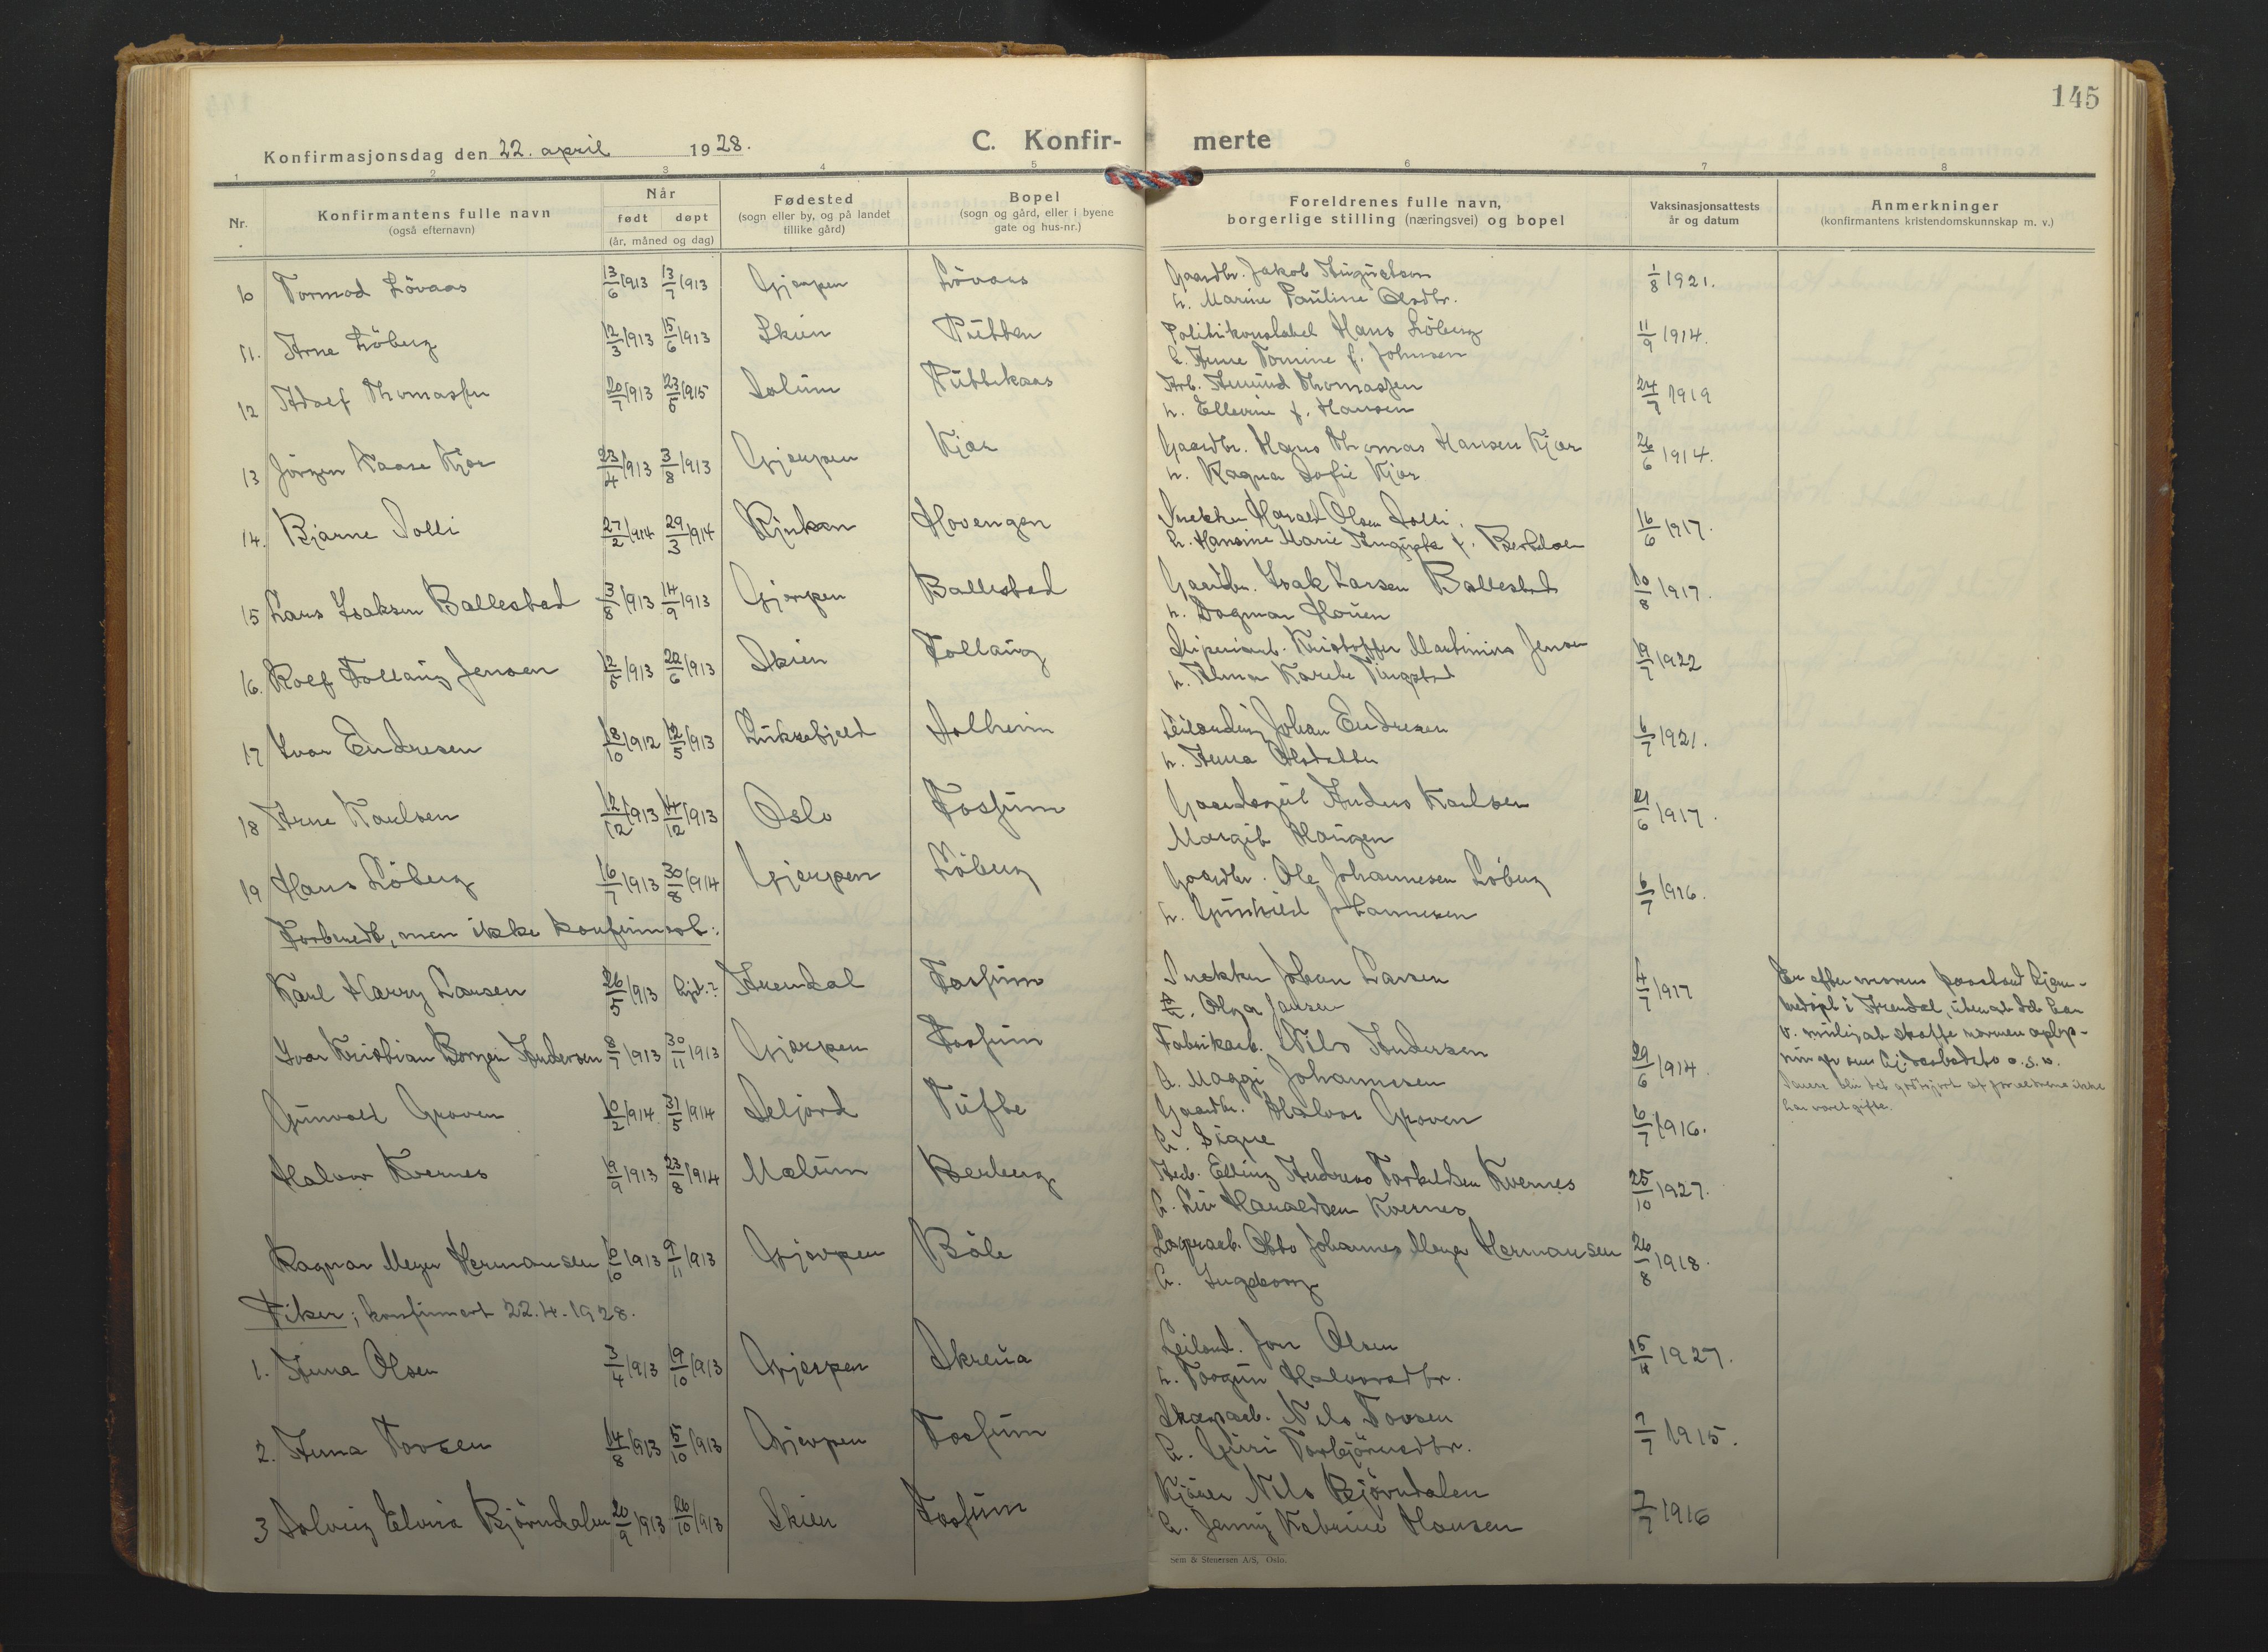 145
Konfirmasjonsdag den 22. april 1928.
C. Konfir- merte
1 2 3 4 5 6 7 8
Nr.
Konfirmantens fulle navn
(også efternavn)
Når
født døpt
(år, måned og dag)
Fødested
(sogn eller by, og på landet
tillike gård)
Bopel
(sogn og gård, eller i byene
gate og hus-nr.)
Foreldrenes fulle navn,
borgerlige stilling (næringsvei) og bopel
Vaksinasjonsattests
år og datum
Anmerkninger
(konfirmantens kristendomskunnskap m. v.)
10 Tormod Lövaas 13/6 1913 13/7 1913 Gjerpen Lövaas Gaardbr. Jakob Augustson 1/8 1921.
h. Marine Pauline Olsdtr.
11. Arne Löberg 12/3 1913 15/6 1913 Skien Putten Politikonstabel Hans Löberg 11/9 1914.
h. Anne Tomine f. Johnsen
12 Adolf Thomassen 20/7 1913 23/5 1915 Solum Puttekaas Arb. Amund Thomassen 24/7 1919
h. Ellevine f. Hansen
13 Jörgen Kaase Kjær 23/4 1913 3/8 1913 Gjerpen Kjær Gaardbr. Hans Thomas Hansen Kjær 26/6 1914.
h. Ragna Sofie Kjær
14. Bjarne Solli 27/2 1914 29/3 1914 Rjukan Hovengen Snekker Harald Olsen Solli. 16/6 1917.
h. Hansine Marie Augusta f.
15 Lars Isaksen Ballestad 3/8 1913 14/9 1913 Gjerpen Ballestad Gaardbr. Isak Larsen Ballestad 10/8 1917.
h. Dagmar Houen
16. Rolf Follaug Jensen 12/5 1913 22/6 1913 Skien Follaug Sliperiarb. Kristoffer Martinius Jensen 19/7 1922
h. Alma Karete
17 Ivar Endresen 18/10 1912 12/5 1913 Luksefjeld Solheim Leilending Johan Endresen 6/7 1921.
h. Anna Olsdatter
18 Arne Karlsen 12/12 1913 14/12 1913 Oslo Fossum Gaardsgut Anders Karlsen 21/6 1917.
Margit Haugen
19 Hans Löberg 16/7 1913 30/8 1914 Gjerpen Löberg Gaardbr. Ole Johannesen Löberg 6/7 1916.
h. Gunhild Johannesen
Forberedt, men ikke konfirmert:
Karl Harry Larsen 26/5 1913 Hjd.? Arendal Fossum Snekker Johan Larsen 4/7 1917
h. Olga Jansen
Er efter morens paastand hjem-
medøpt i Arendal, uten at det har
v. mulig at skaffe nærmere oplys-
ninger om hj.daabsdato o.s.v.
Senere blir det godtgjort at foreldrene ikke
har været gifte.
Ivar Kristian Borgen Andersen 8/7 1913 30/11 1913 Gjerpen Fossum Fabrikarb. Nils Andersen 29/6 1914.
h. Maggi Johannesen
Gunvald Groven 10/2 1914 31/5 1914 Seljord Tufte Gaardbr. Halvor Groven 6/7 1916.
h. Signe
Halvor Kvernes 19/9 1913 23/8 1914 Mælum Berberg Arb. Elling Andreas Torkildsen Kvernes 25/10 1927.
h. Liv Haraldsen Kvernes
Ragnar Meyer Hermansen 10/10 1913 9/11 1913 Gjerpen Böle Lagerarb. Otto Johannes Meyer Hermansen 26/8 1918.
h. Ingeborg
Piker; konfirmert 22.4.1928.
1. Anna Olsen 3/4 1913 19/10 1913 Gjerpen Skreua Leilend. Jon Olsen 15/11 1927.
h. Torgun Halvorsdtr.
2. Anna Torsen 14/8 1913 5/10 1913 Gjerpen Fossum Skogsarb. Nils Torsen 7/7 1915.
h. Guri Torbjörnsdtr.
3 Solveig Elvira Björndalen 20/9 1913 26/10 1913 Skien Fossum Kjører Nils Bjørndalen 7/7 1916
h. Jenny Katrine Hansen
Sem & Stenersen A/S, Oslo.